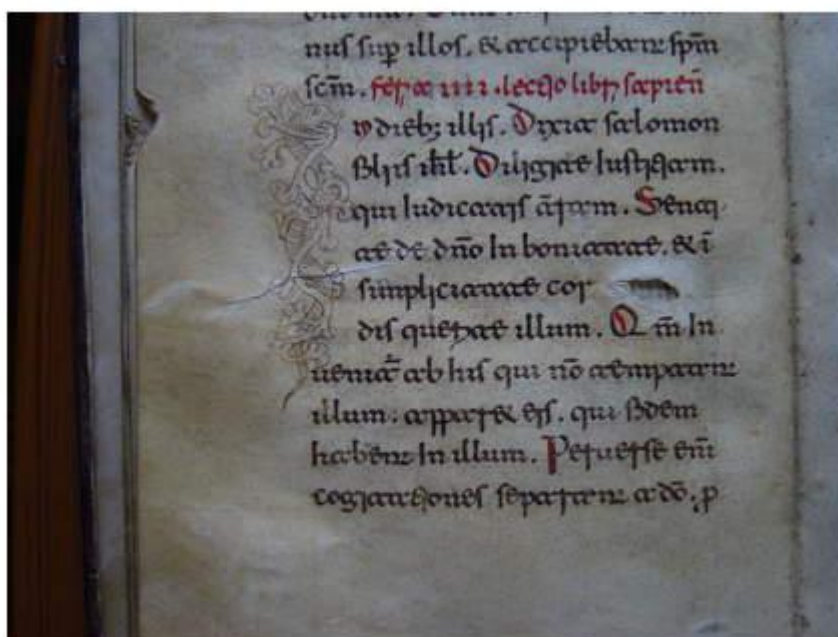 nus sup illos. & accipiebant spm̄
scm̄. feria IIII. lectio libri sapien̄
n dieb; illis. Dixit salomon
filiis isrl̄. Diligite Iustitiam.
qui Iudicatis t̄ram. Senti
te de dn̄o In bonitate. & ī
simplicitate cor
dis querite illum. Qm̄ In
uenit̄ ab his qui nō temptant
illum: apparet & eis. qui fidem
habent In illum. Peruerse eni͞m
cogitationes separant a dō. p